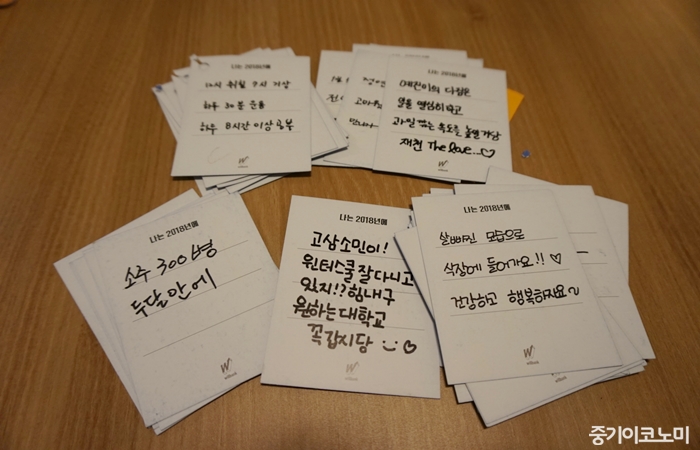 나는 2018년에
12시 취침 7시 기상
하루 30분 운동
하루 8시간 이상 공부
W
나는 2018년에
일을 열심히하고
과일 깎는 속도를 높일거당
재천 The love...♡
나는 2018년에
소주 300병
두달안에
W
나는 2018년에
고삼소민이!
윈터스쿨 잘 다니고
있지!? 힘내구
원하는 대학교
꼭갑시당 ♡
W
나는 2018년에
살빠진 모습으로
식장에 들어가요!! ♡
건강하고 행복하자요~
W
중기이코노미